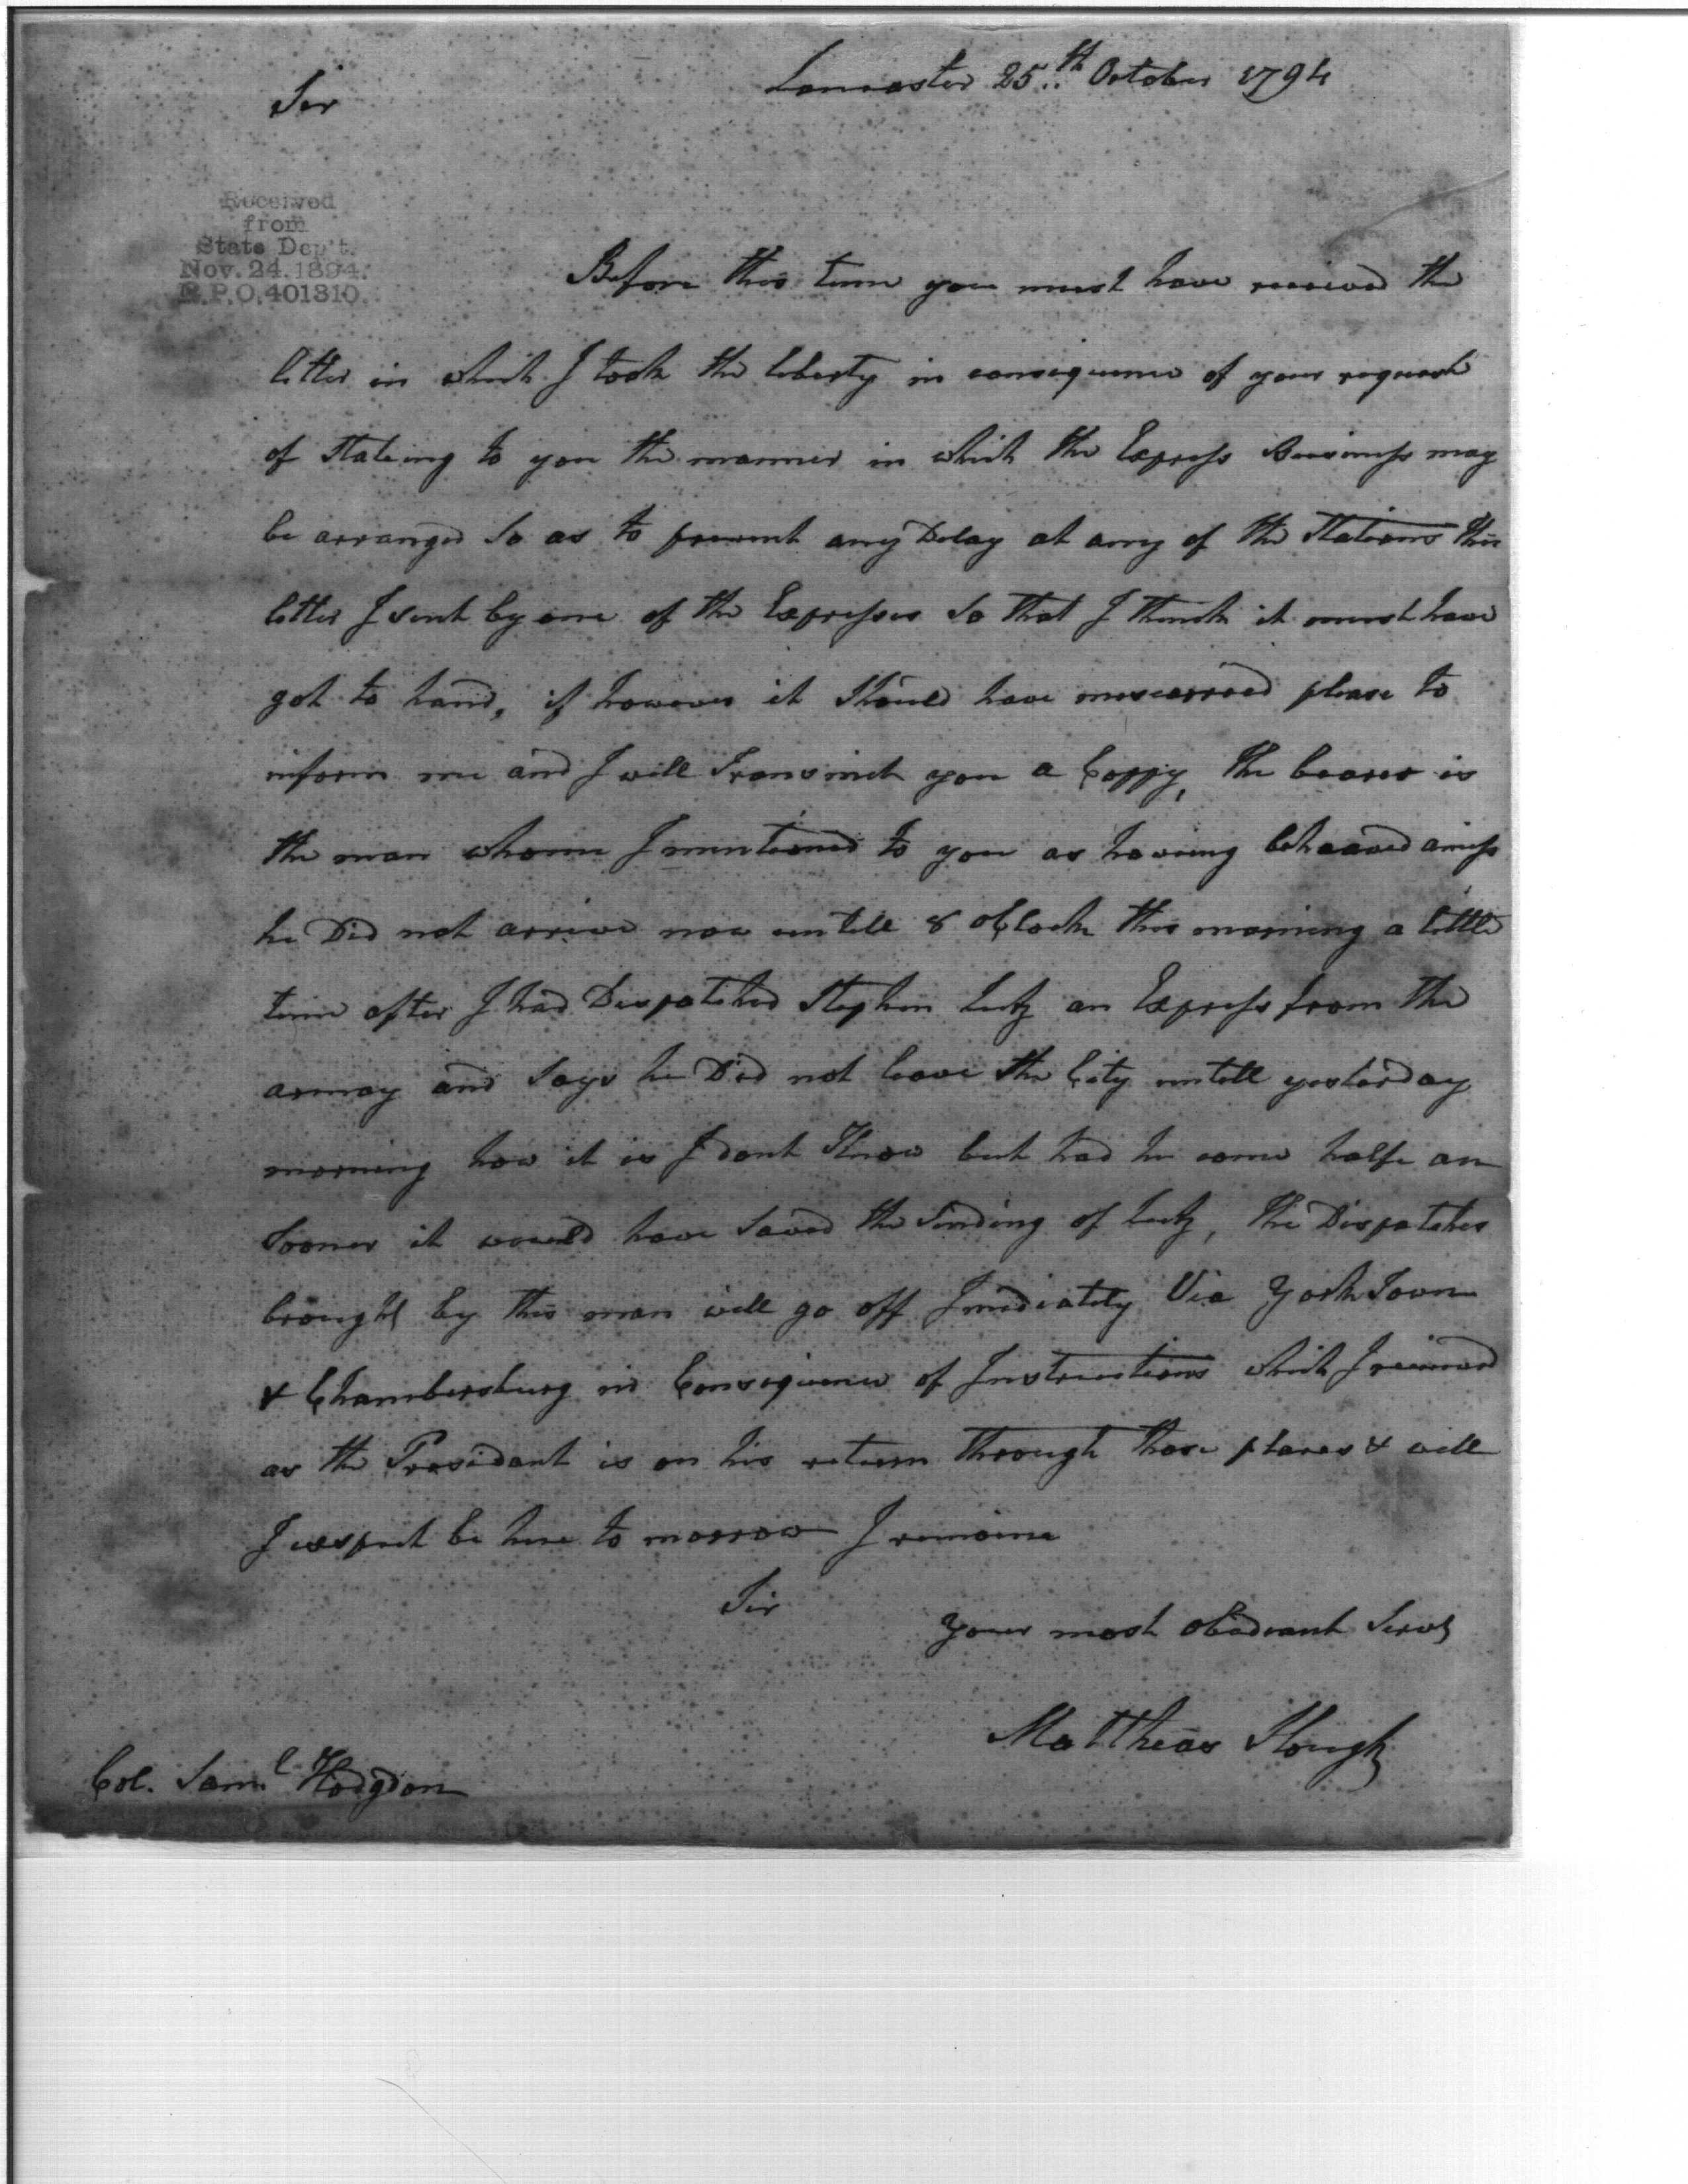 Lancaster 25th October 1794
Sir
Received
from
State Dep't.
Nov. 24. 1894.
R.P.O. 401310.
Before this time you must have received the
letter in which I took the liberty in consequence of your request
of Stateing to you the manner in which the Express Buisiness may
be arranged So as to prevent any Delay at any of the Stations this
letter I sent by one of the Expresses So that I think it must have
got to hand, if however it Should have miscarried please to
inform me and I will Transmit you a Coppy, the bearer is
the man whome I mentioned to you as haveing behaaved amiss
he Did not arrive now untill 8 oClock this morning a little
time after I had Dispatched Stephen Lutz an Express from the
armay and Says he Did not leave the City untill yesterday
morning how it is I dont Know but had he come halfe an
Sooner it would have Saved the Sending of Lutz, the Dispatches
brought by this man will go off Imidiately Via York Town
& Chambersburg in Consequence of Instructions which I received
as the Presidant is on his return through those places & will
I exspect be here to morrow I remaine
Sir
Your most obediant Servt
Matthias Slough
Col. Saml Hodgdon